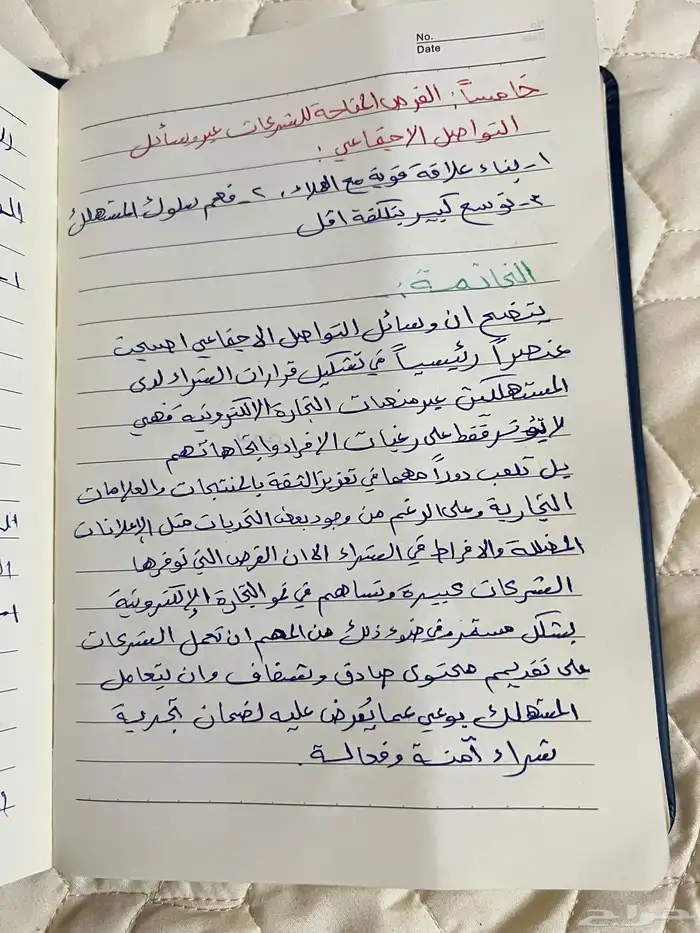 No.
Date
خامساً: الفرص المتاحة للشركات عبر وسائل
التواصل الاجتماعي:
١- بناء علاقة قوية مع العملاء، ٢- فهم سلوك المستهلك
٣- توسع كبير بتكلفة اقل
الخاتمة:
يتضح ان وسائل التواصل الاجتماعي اصبحت
عنصراً رئيسياً في تشكيل قرارات الشراء لدى
المستهلكين عبر منصات التجارة الإلكترونية فهي
لا تؤثر فقط على رغبات الافراد واتجاهاتهم
بل تلعب دوراً مهما في تعزيز الثقة بالمنتجات والعلامات
التجارية وعلى الرغم من وجود بعض التحديات مثل الإعلانات
المضللة والافراط في الشراء الا ان الفرص التي توفرها
الشركات كبيرة وتساهم في نمو التجارة الإلكترونية
بشكل مستمر وفي ضوء ذلك من المهم ان تعمل الشركات
على تقديم محتوى صادق وشفاف وان يتعامل
المستهلك بوعي عما يُعرض عليه لضمان تجربة
شراء آمنة وفعالة.
حراج